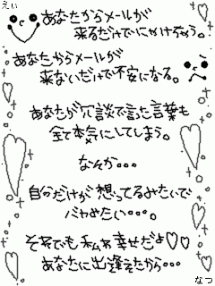 えい
あなたからメールが
来るだけでにやけちゃう。
あなたからメールが
来ないだけで不安になる。
あなたが冗談で言った言葉も
全て本気にしてしまう。
なぜか・・・
自分だけが想ってるみたいで
バカみたい・・・。
それでも私は幸せだよ♡♡
あなたに出逢えたから・・・
なつ